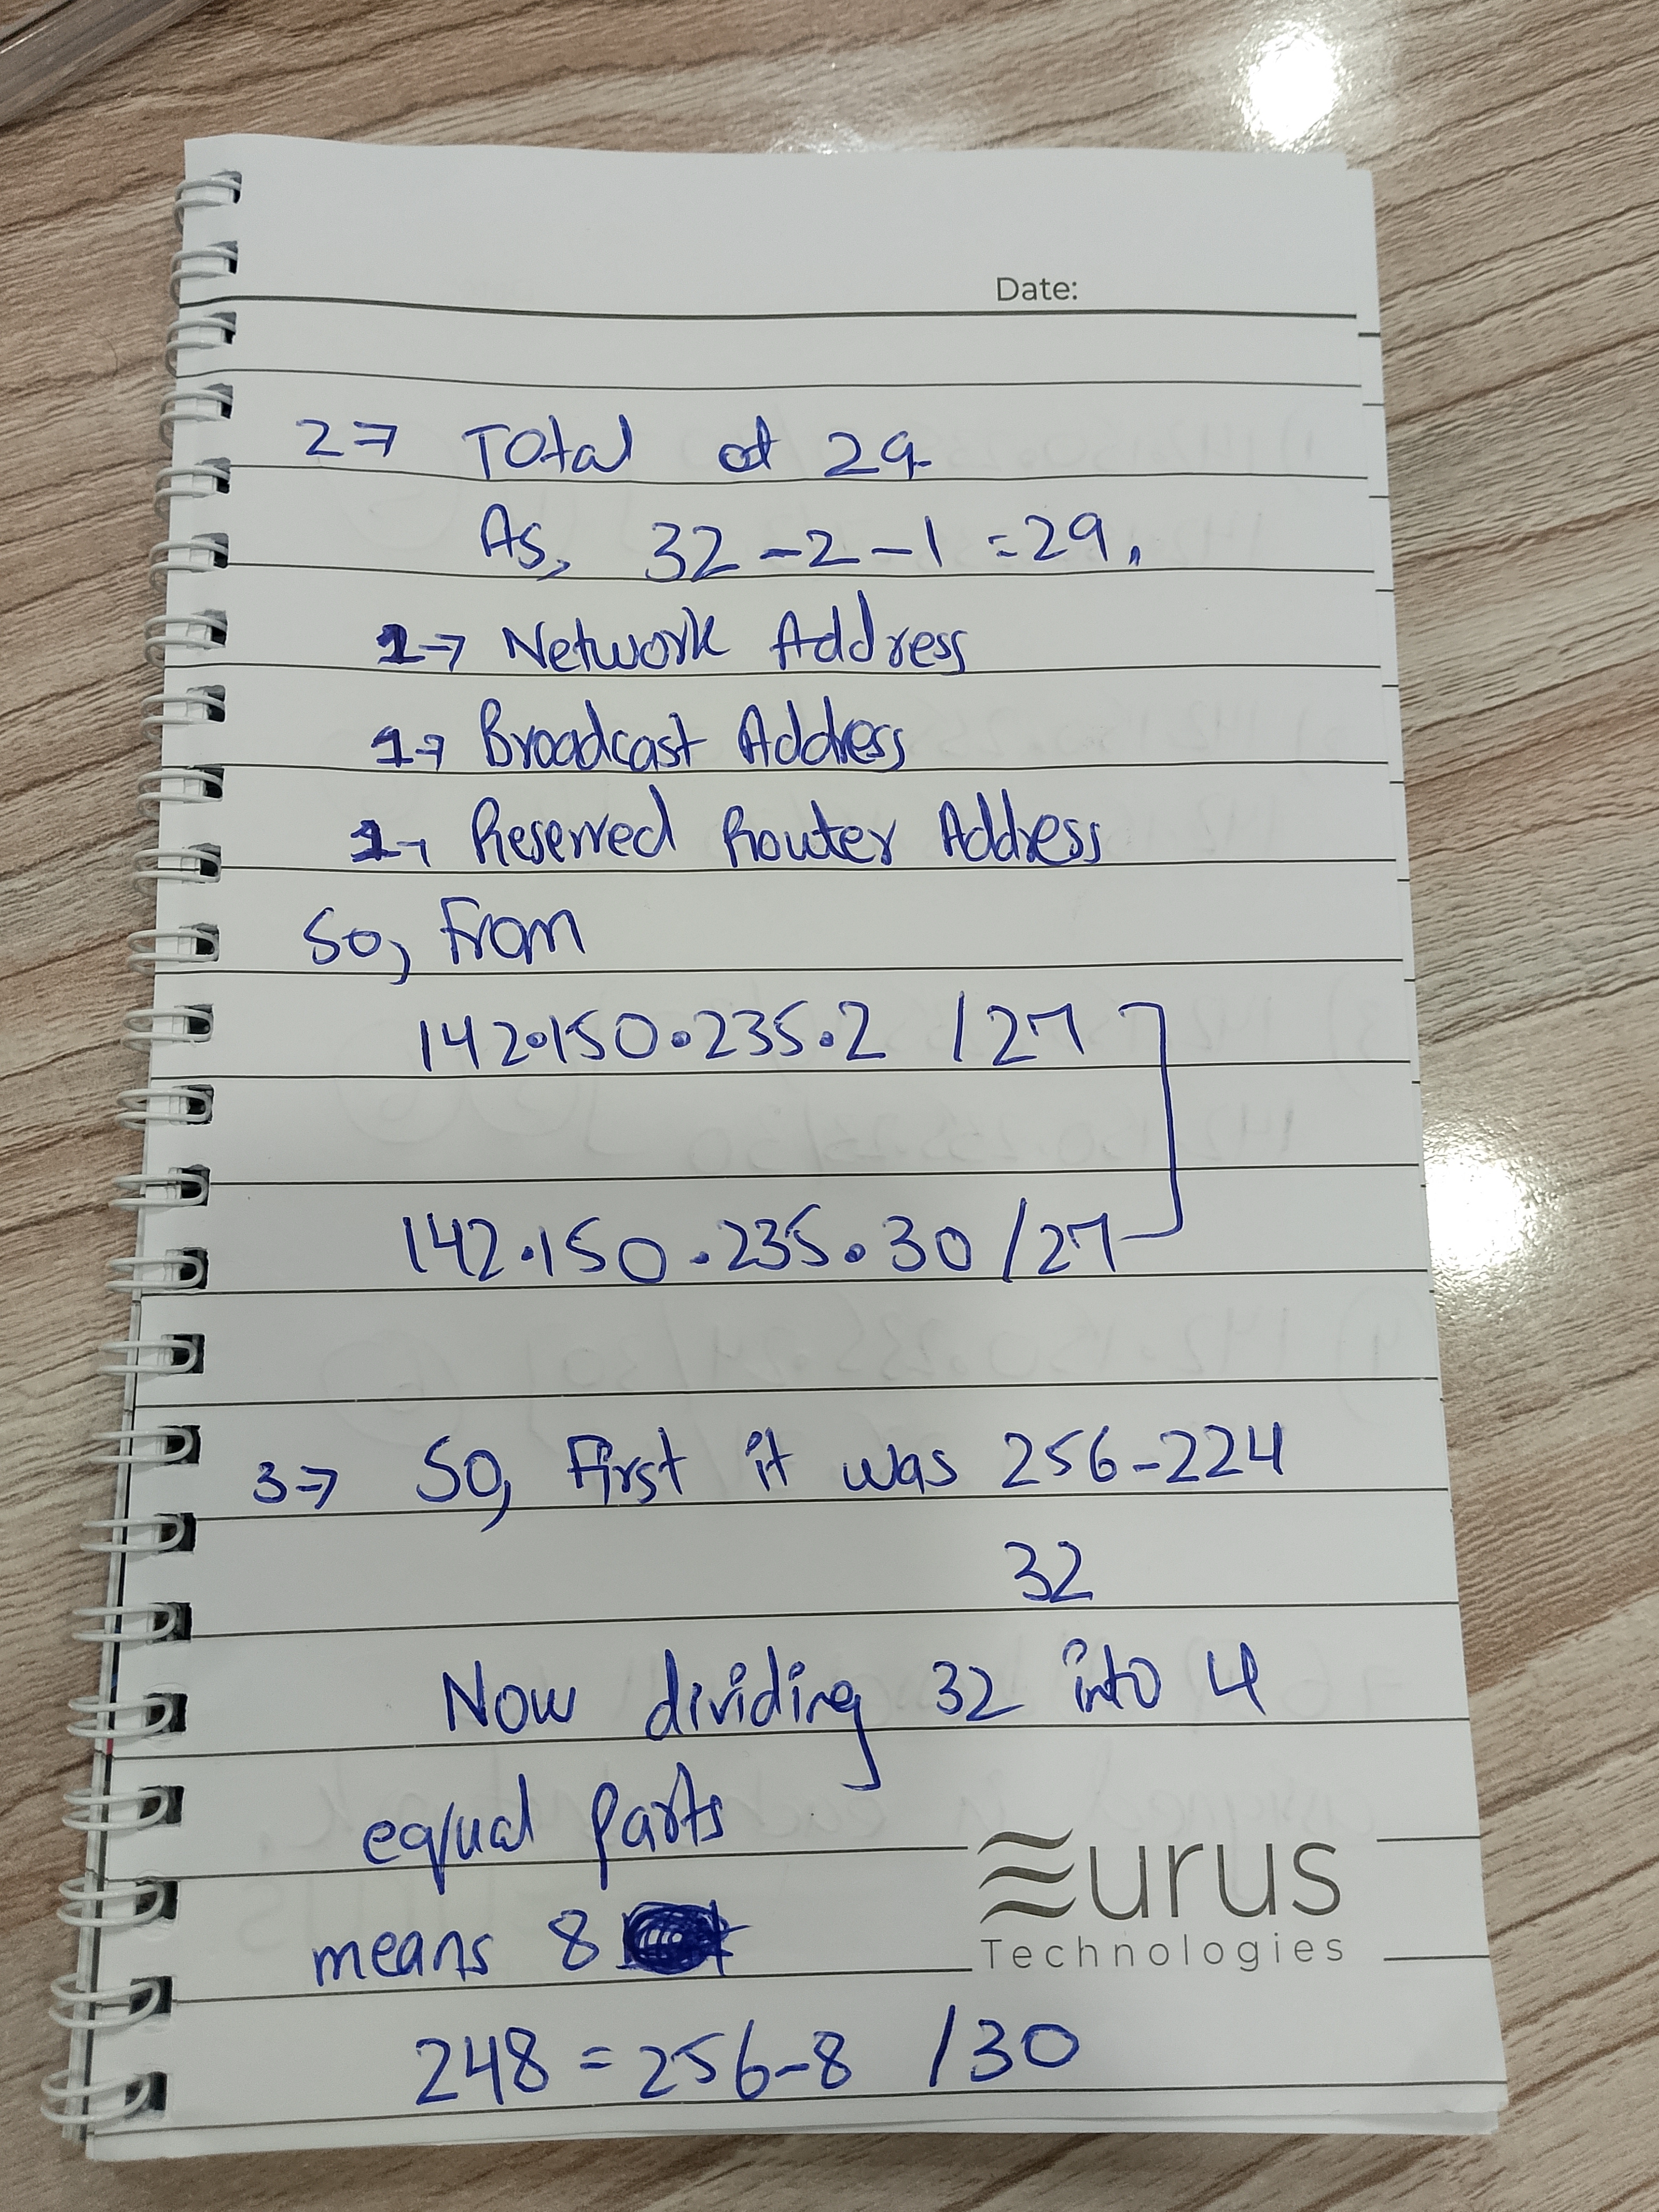 Date:
2→ Total of 29.
As, 32-2-1 = 29.
1→ Network Address
1→ Broadcast Address
1→ Reserved Router Address
So, From
142.150.235.2 /27
142.150.235.30 /27
3→ So, First it was 256-224
32
Now dividing 32 into 4
equal Parts
means 8
248 = 256-8 /30
Eurus
Technologies